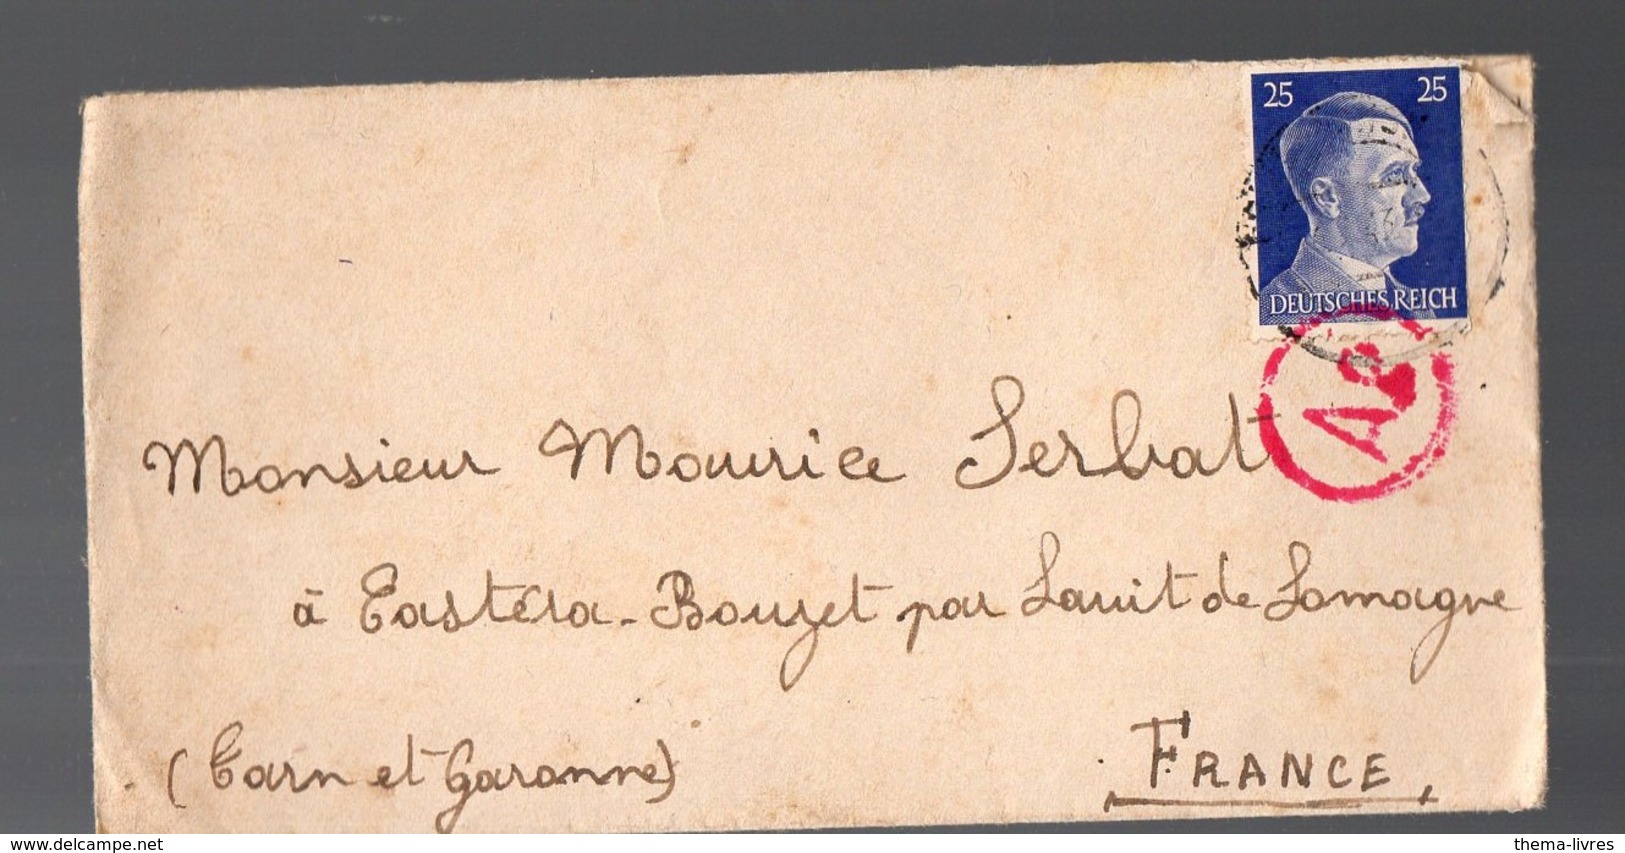 25 25
DEUTSCHES REICH
Monsieur Maurice Serbat
à Castéra-Bouzet par Lavit de Lomagne
(Tarn et Garonne)
FRANCE
delcampe.net
thema-livres